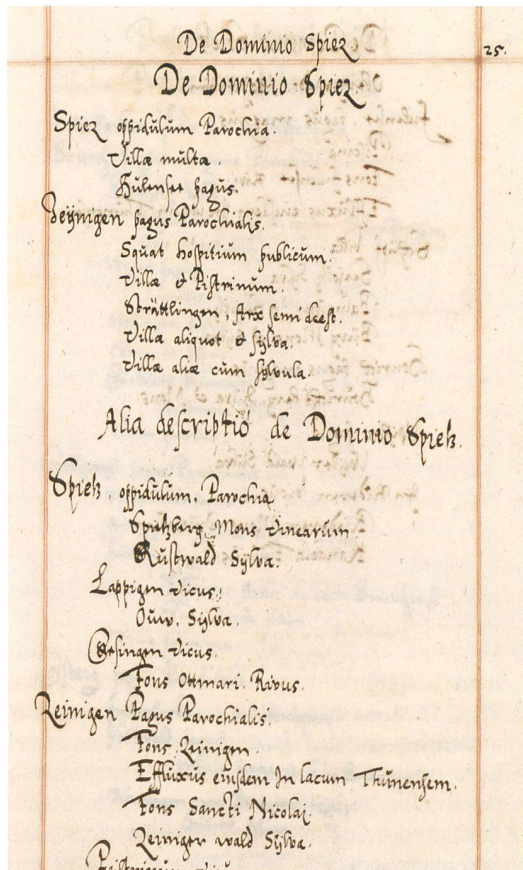 De Dominio Spiez
25.
De Dominio Spiez.
Spiez oppidulum Parochia.
Villæ multæ
Hulensee pagus.
Zeÿnigen pagus Parochialis.
Squat hospitium publicum.
Villæ & Pistrinum.
Strättlingen, Arx semideest.
Villæ aliquot & sylva.
Villæ aliæ cum sylvula.
Alia descriptio de Dominio Spietz.
Spietz, oppidulum, Parochia
Spietzberg Mons vinearum
Rustwald Sylva.
Lappigen vicus.
Ouw. Sylva.
Gesingen vicus.
Fons Ottmari. Rivus.
Zeinigen Pagus Parochialis.
Fons Zeinigen.
Effluxus eiusdem In lacum Thunensem.
Fons Sancti Nicolaj
Zeiniger wald Sylva.